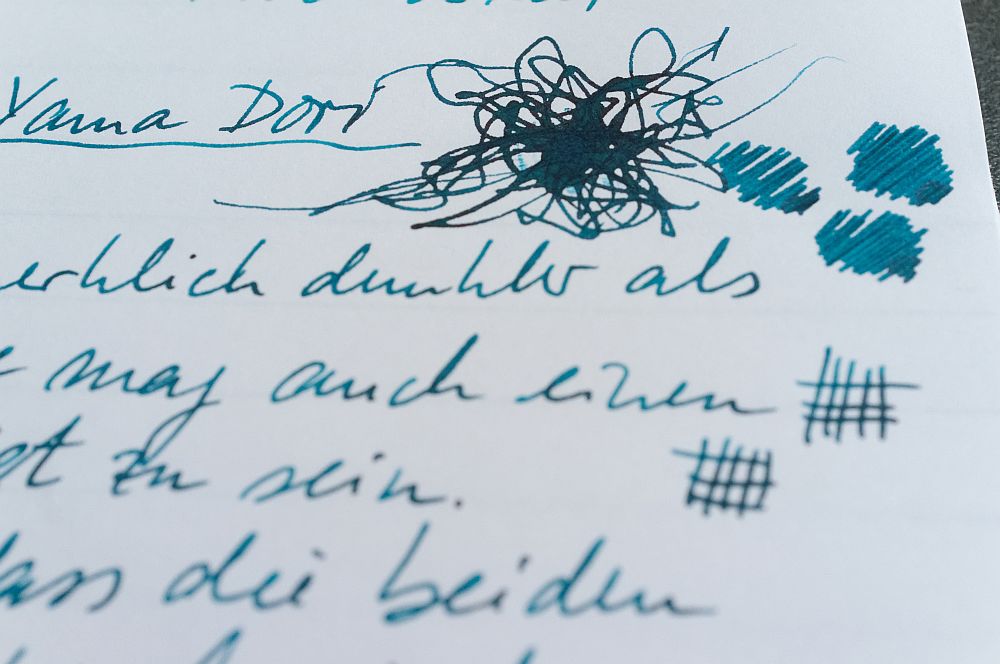 Yama Dori
merklich dunkler als
mag auch einen
zu sein.
dass die beiden